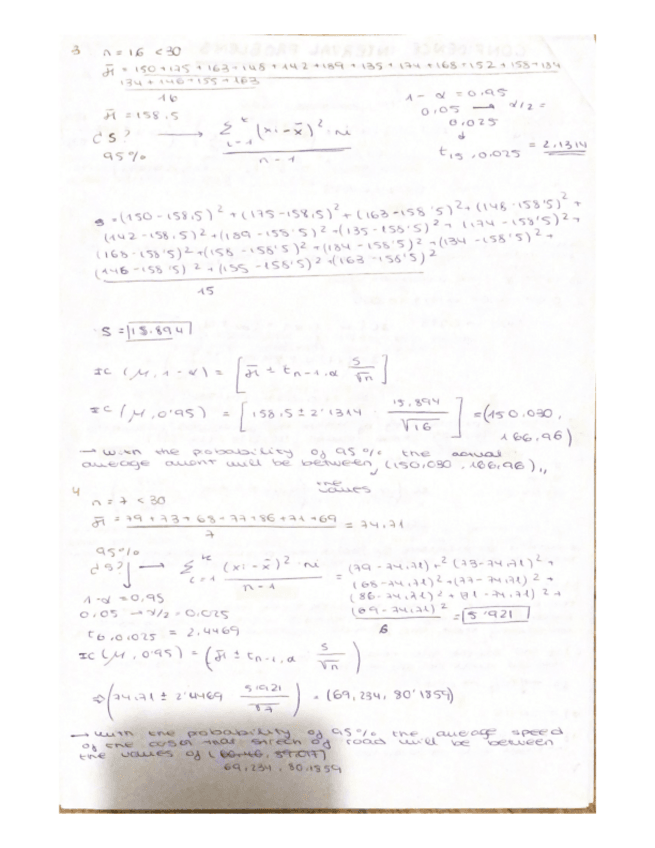 3 n = 16 < 30
x̄ = 150 + 175 + 163 + 148 + 142 + 189 + 135 + 174 + 168 + 152 + 158 + 184
134 + 146 + 155 + 163
16
x̄ = 158.5
1 - α = 0,95
0.05 → α/2 =
0,025
¿S? → Σ (xi - x̄)² · ni
i=1
n - 1
95%
t15, 0.025 = 2,1314
s = (150 - 158,5)² + (175 - 158,5)² + (163 - 158'5)² + (148 - 158'5)² +
(142 - 158.5)² + (189 - 158'5)² + (135 - 158'5)² + (174 - 158'5)² +
(168 - 158'5)² + (158 - 158'5)² + (184 - 158'5)² + (134 - 158'5)² +
(146 - 158'5)² + (155 - 158'5)² + (163 - 158'5)²
15
S = 15.894
IC (μ, 1 - α) = [x̄ ± tn-1, α S/√n]
IC (μ, 0'95) = [158,5 ± 2'1314 · 15,894/√16] = (150,030,
166,96)
→ with the pobability of 95% the actual
aveage amont will be between (150,030, 166,96),,
the
values
4 n = 7 < 30
x̄ = 79 + 73 + 68 + 77 + 86 + 71 + 69 = 74,71
7
95%
¿S? → Σ (xi - x̄)² · ni
i=1
n - 1
= (79 - 74,71)² + (73 - 74,71)² +
(68 - 74,71)² + (77 - 74,71)² +
(86 - 74,71)² + (71 - 74,71)² +
(69 - 74,71)² = 5'921
6
1 - α = 0,95
0.05 → α/2 = 0,025
t6, 0,025 = 2,4469
IC (μ, 0'95) = (x̄ ± tn-1, α S/√n)
⇒ (74,71 ± 2'4469 5'921/√7) = (69,234, 80'1859)
→ with the probability of 95% the aveage speed
of the that strech of road will be between
the values of
69,234, 80.1859